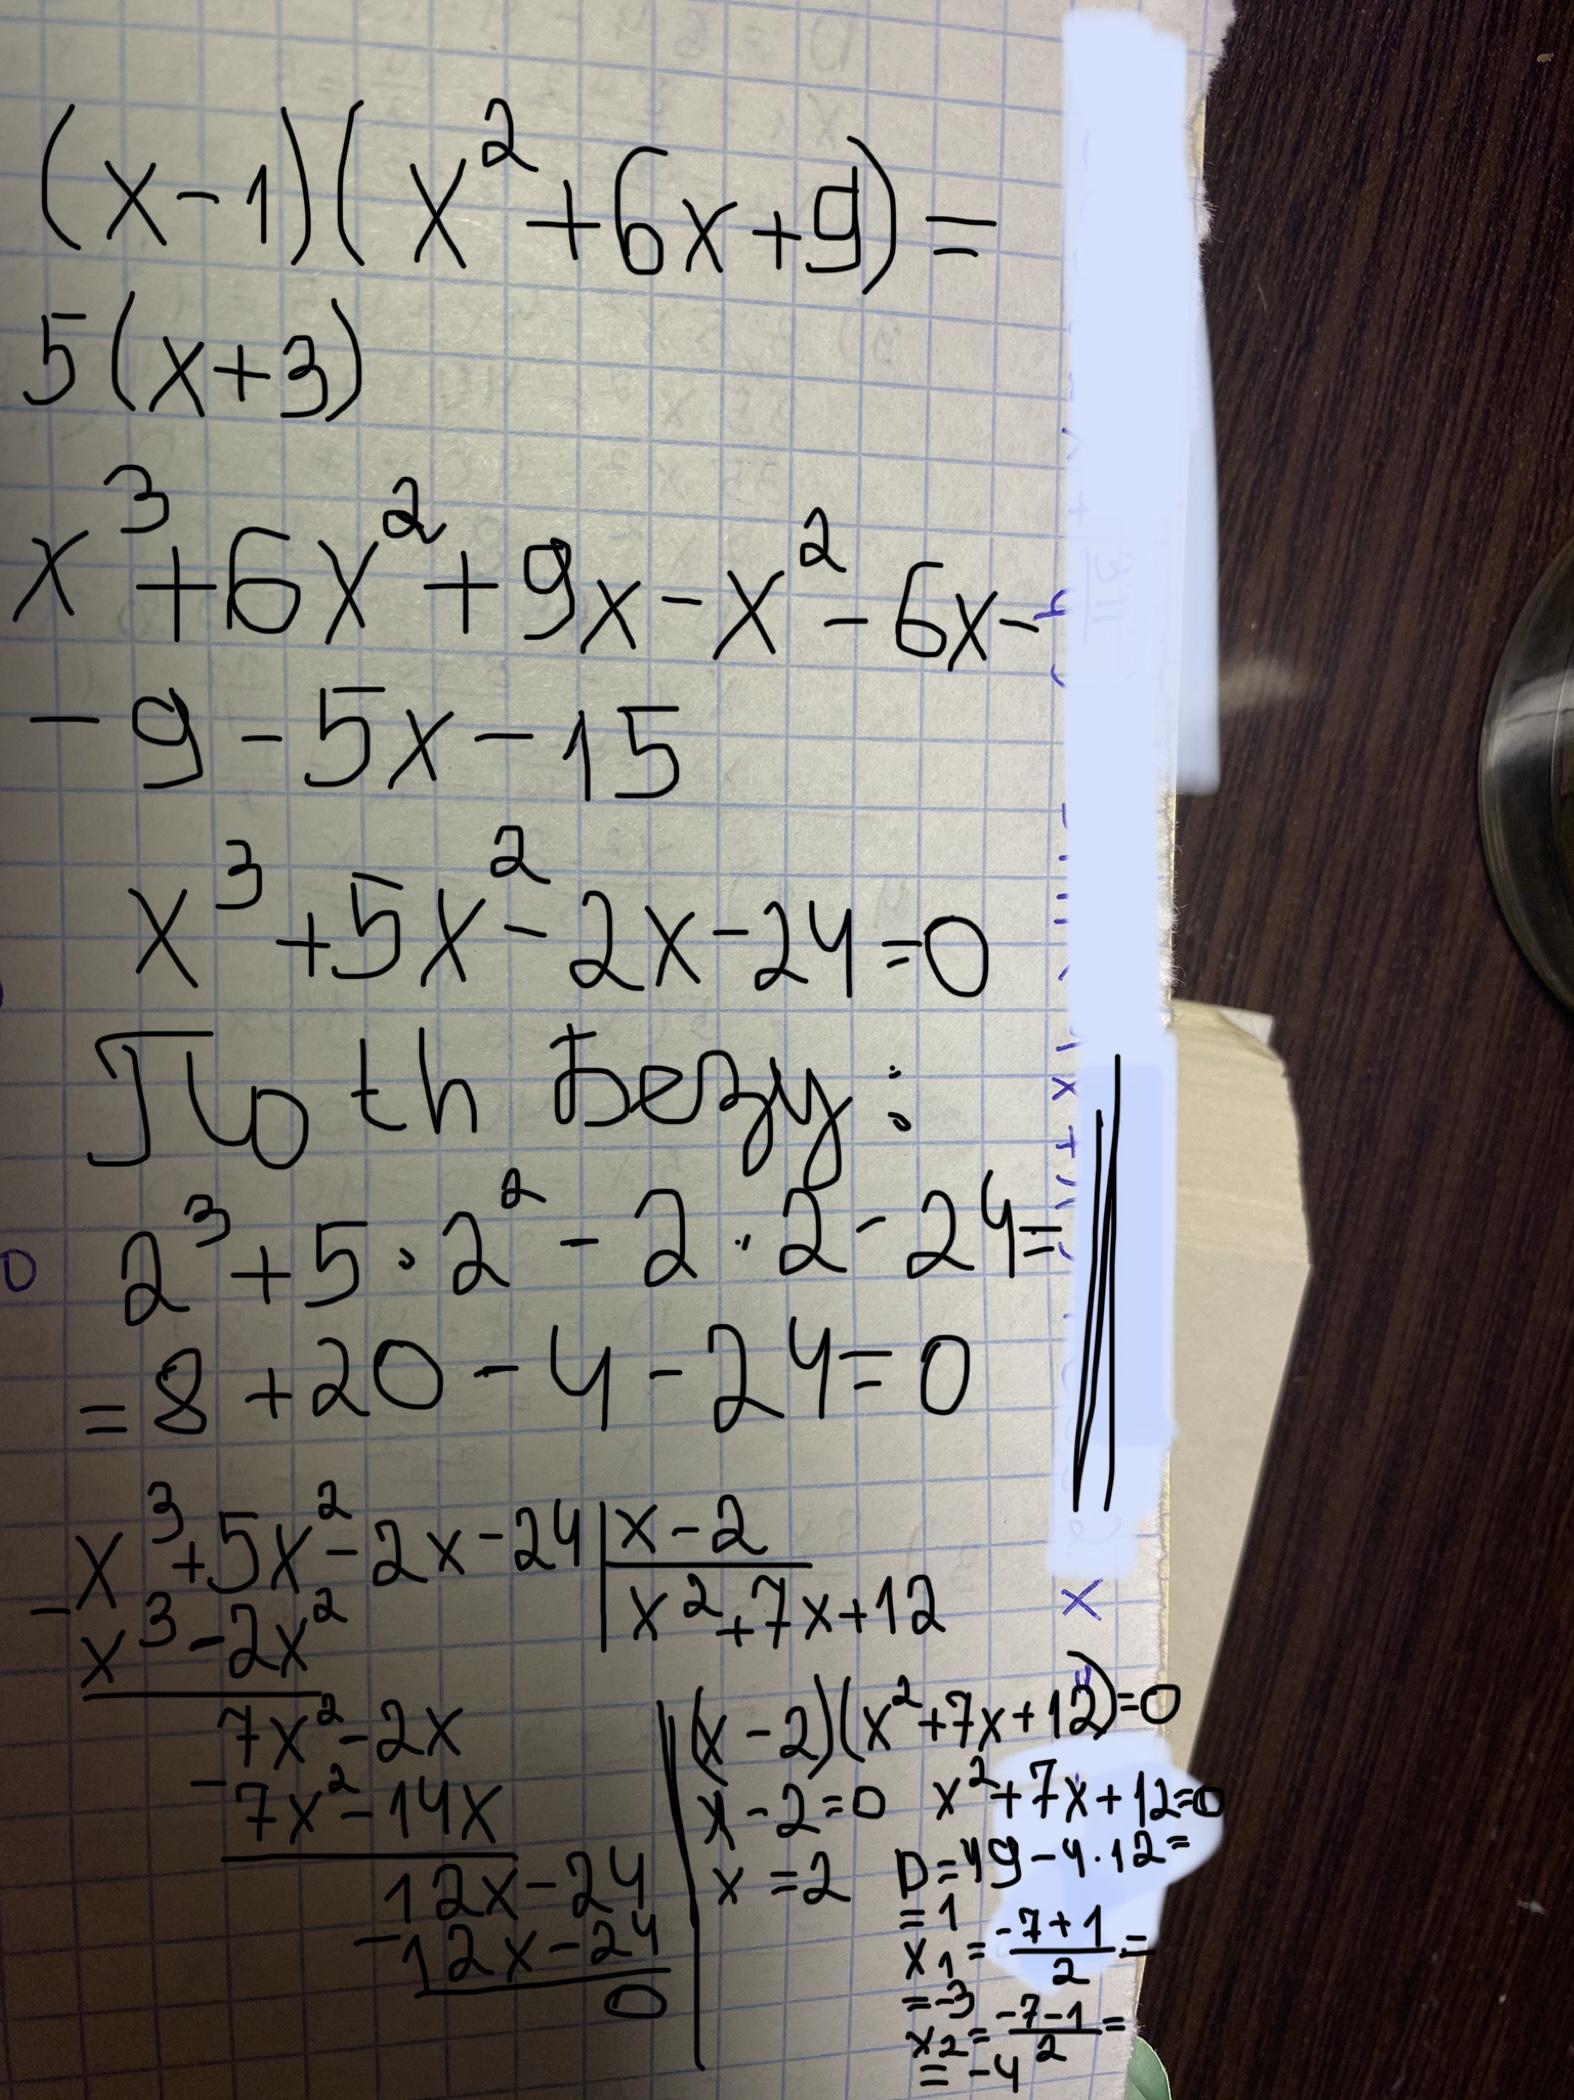 (x-1)(x²+6x+9)=
5(x+3)
x³+6x²+9x-x²-6x-
-9-5x-15
x³+5x²-2x-24=0
По th Безу:
2³+5·2²-2·2-24=
=8+20-4-24=0
x³+5x²-2x-24 | x-2
-x³-2x² | x²+7x+12
7x²-2x
-7x²-14x
12x-24
-12x-24
0
(x-2)(x²+7x+12)=0
x-2=0 x²+7x+12=0
x=2 D=49-4·12=
=1
x₁=(-7+1)/2=
=-3
x₂=(-7-1)/2=
=-4